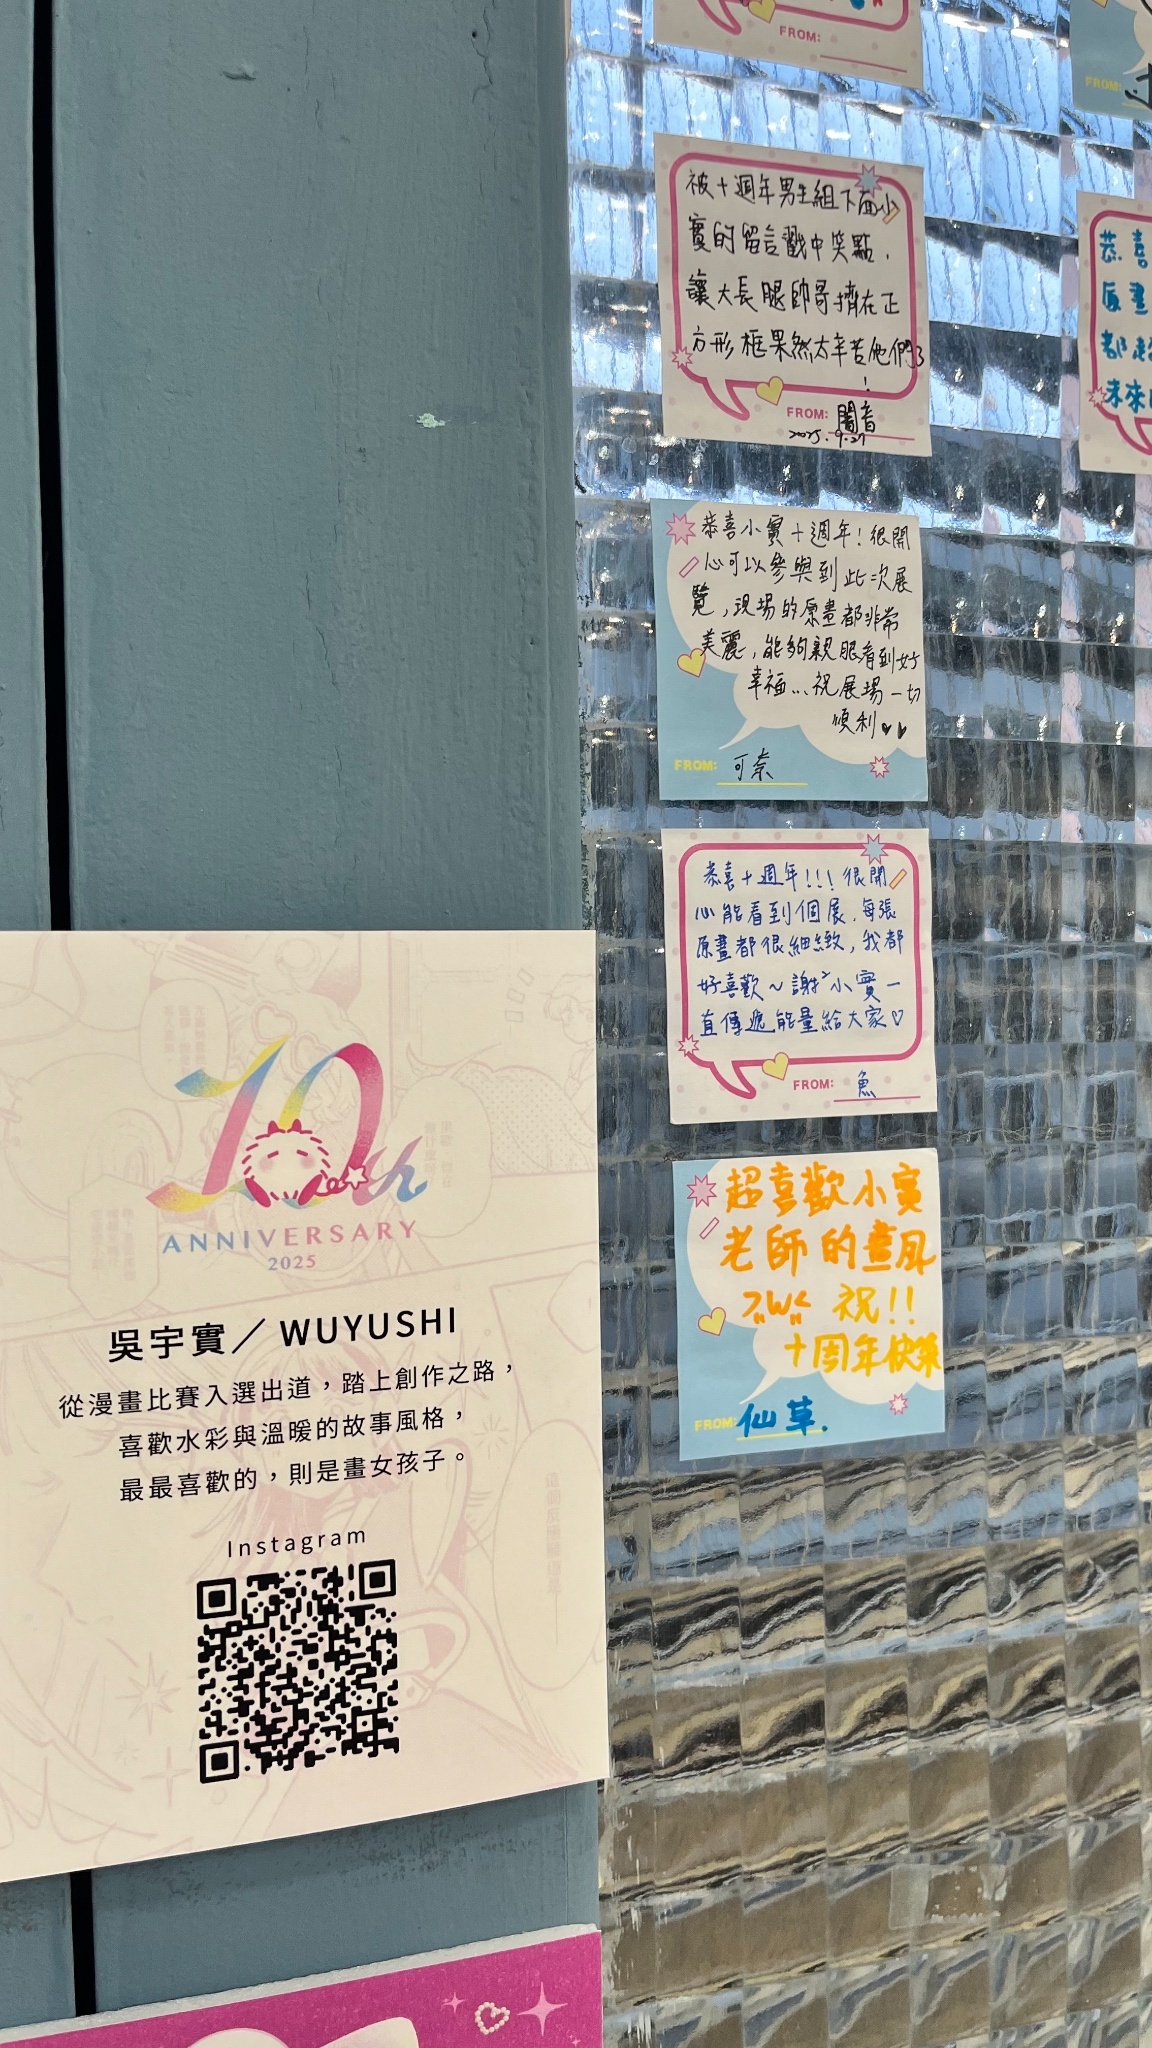 FROM:
FROM:
被十週年男生組下面小
實的留言戳中笑點,
讓大長腿帥哥擠在正
方形框果然太辛苦他們了
!
FROM: 闇音
2025.9.27
恭喜
原畫
都
未來
恭喜小實十週年!很開
心可以參與到此次展
覽,現場的原畫都非常
美麗,能夠親眼看到好
幸福...祝展場一切
順利♥♥
FROM: 可奈
恭喜十週年!!!很開
心能看到個展.每張
原畫都很細緻,我都
好喜歡~謝²小實一
直傳遞能量給大家♡
FROM: 魚
超喜歡小實
老師的畫風
祝!!
十周年快樂
FROM: 仙草.
10th
ANNIVERSARY
2025
吳宇實／WUYUSHI
從漫畫比賽入選出道，踏上創作之路，
喜歡水彩與溫暖的故事風格，
最最喜歡的，則是畫女孩子。
Instagram